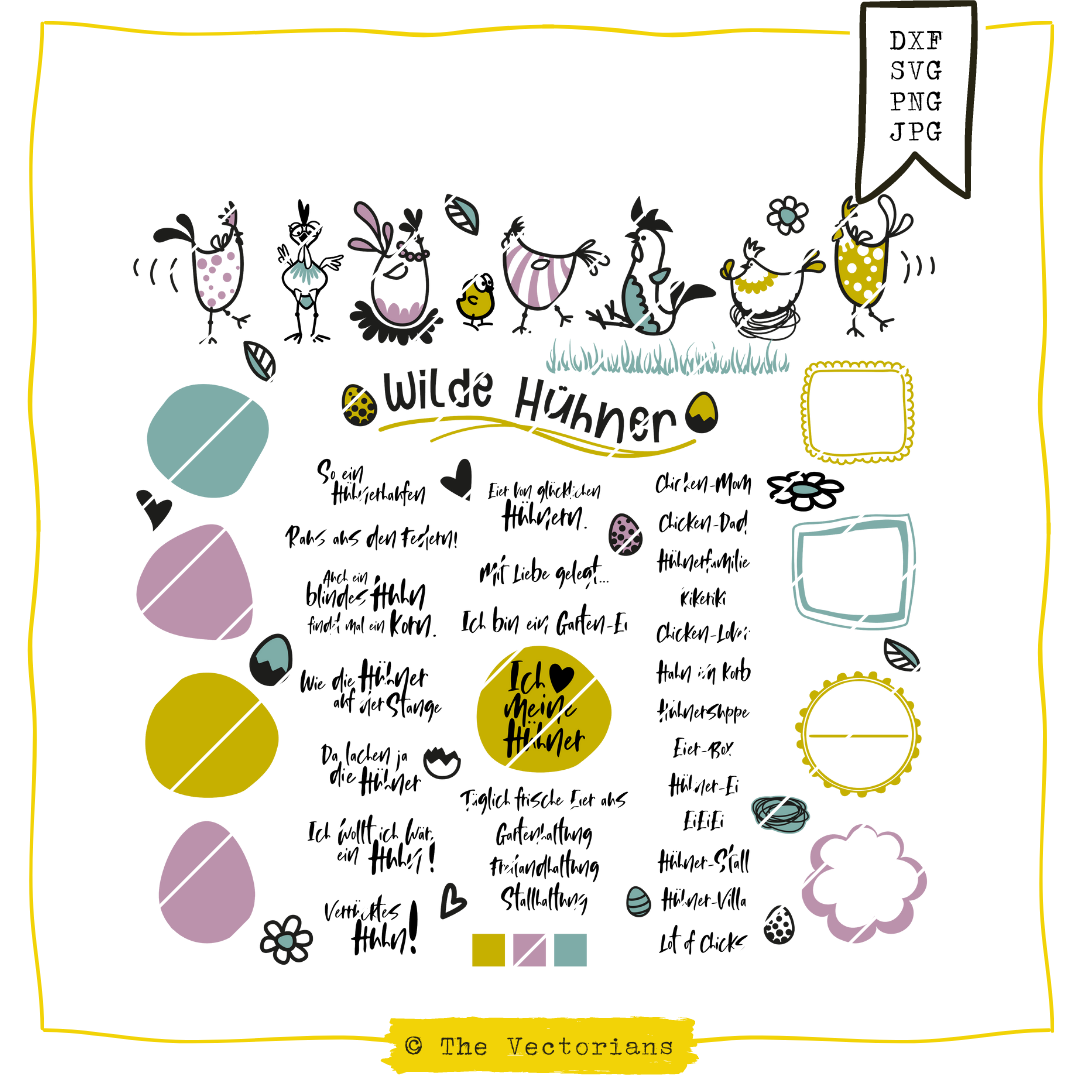 DXF
SVG
PNG
JPG
Wilde Hühner
So ein
Hühnerhaufen
Raus aus den Federn!
Auch ein
blindes Huhn
findet mal ein Korn.
Wie die Hühner
auf der Stange
Da lachen ja
die Hühner
Ich wollt ich wär
ein Huhn!
Verrücktes
Huhn!
Eier von glücklichen
Hühnern.
Mit Liebe gelegt...
Ich bin ein Garten-Ei
Ich ♥
meine
Hühner
Täglich frische Eier aus
Gartenhaltung
Freilandhaltung
Stallhaltung
Chicken-Mom
Chicken-Dad
Hühnerfamilie
Kikeriki
Chicken-Lover
Hahn im Korb
Hühnersuppe
Eier-Box
Hühner-Ei
EiEiEi
Hühner-Stall
Hühner-Villa
Lot of Chicks
© The Vectorians